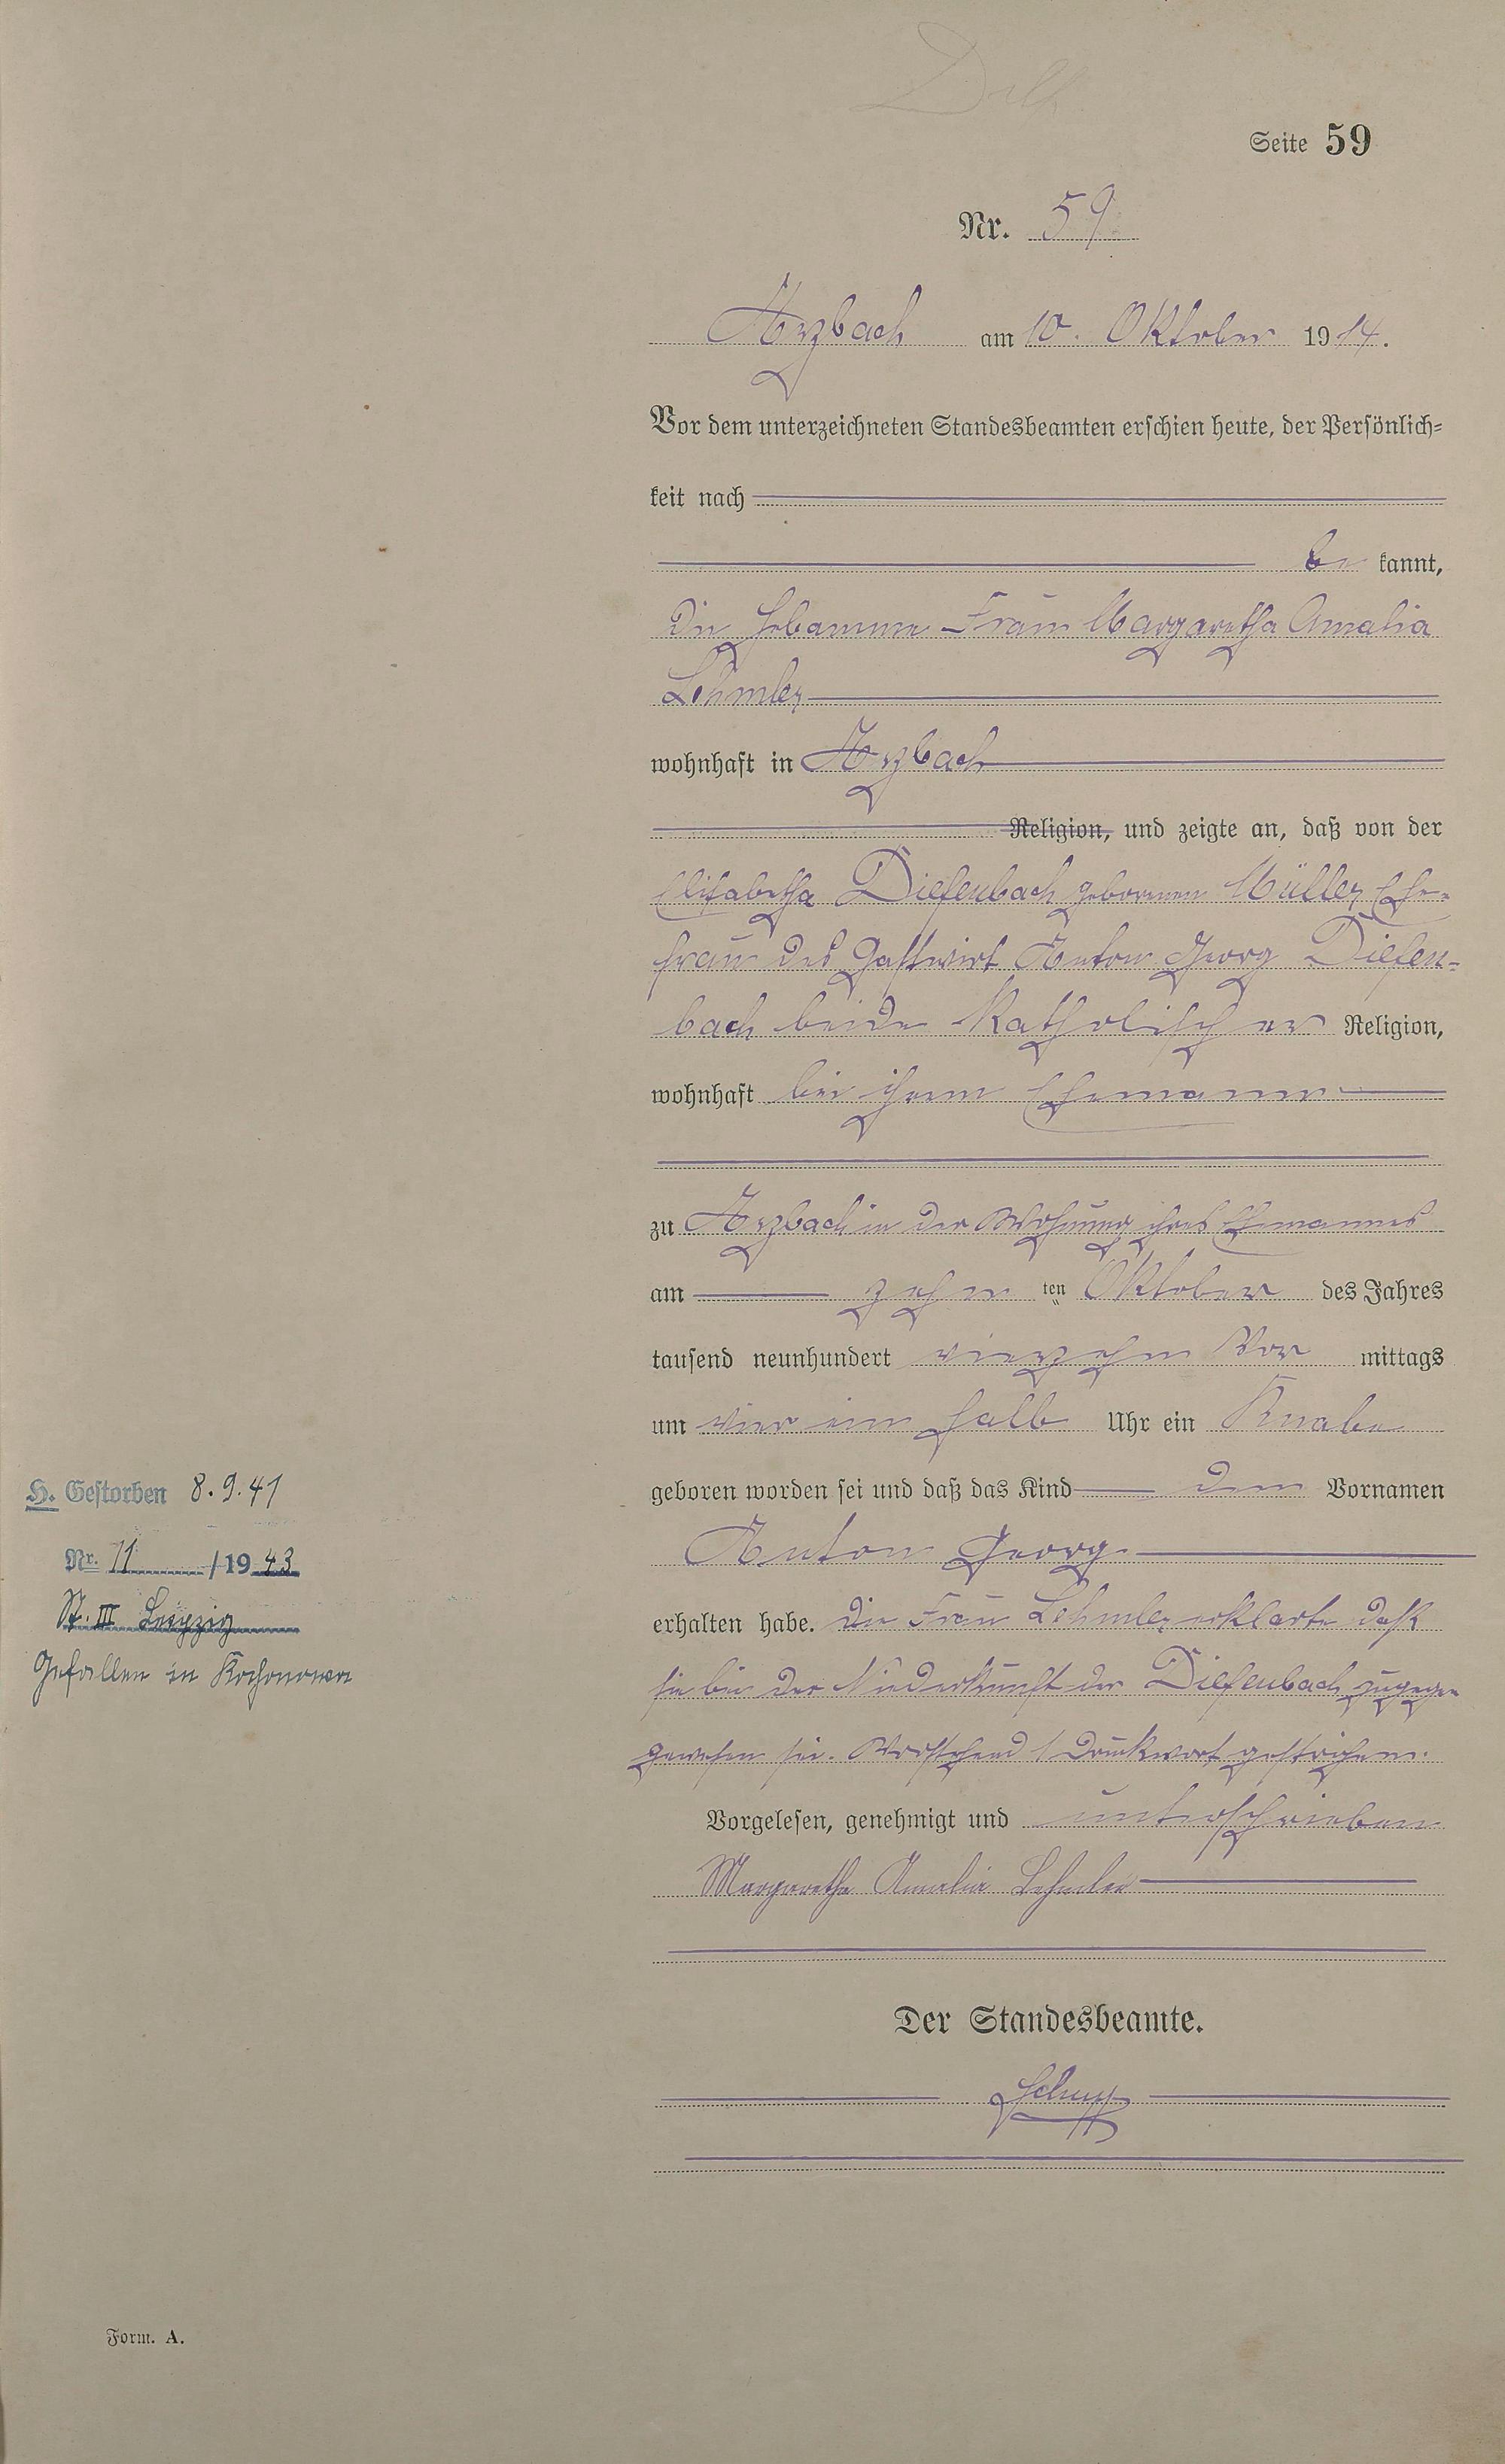 Seite 59
Nr. 59
Arzbach am 10. Oktober 1914.
Vor dem unterzeichneten Standesbeamten erschien heute, der Persönlich-
keit nach
be kannt,
die Hebamme Frau Margaretha Amalia
Lehmler
wohnhaft in Arzbach
Religion, und zeigte an, daß von der
Elisabetha Diefenbach geborenen Müller, Ehe-
frau des Gastwirt Anton Georg Diefen-
bach beide katholischer Religion,
wohnhaft bei ihrem Ehemann
zu Arzbach in der Wohnung ihres Ehemannes
am zehn ten Oktober des Jahres
tausend neunhundert vierzehn Vor mittags
um vier ein halb Uhr ein Knabe
geboren worden sei und daß das Kind den Vornamen
Anton Georg
erhalten habe. Die Frau Lehmler erklarte daß
sie bei der Niederkunft der Diefenbach zugegen
gewesen sei. Vorstehend 1 Druckwort gestrichen.
Vorgelesen, genehmigt und unterschrieben
Margaretha Amalia Lehmler
Der Standesbeamte.
Schupp
H. Gestorben 8.9.41
Nr. 11 /1943
St. III Leipzig
Gefallen in Kochonowa
Form. A.